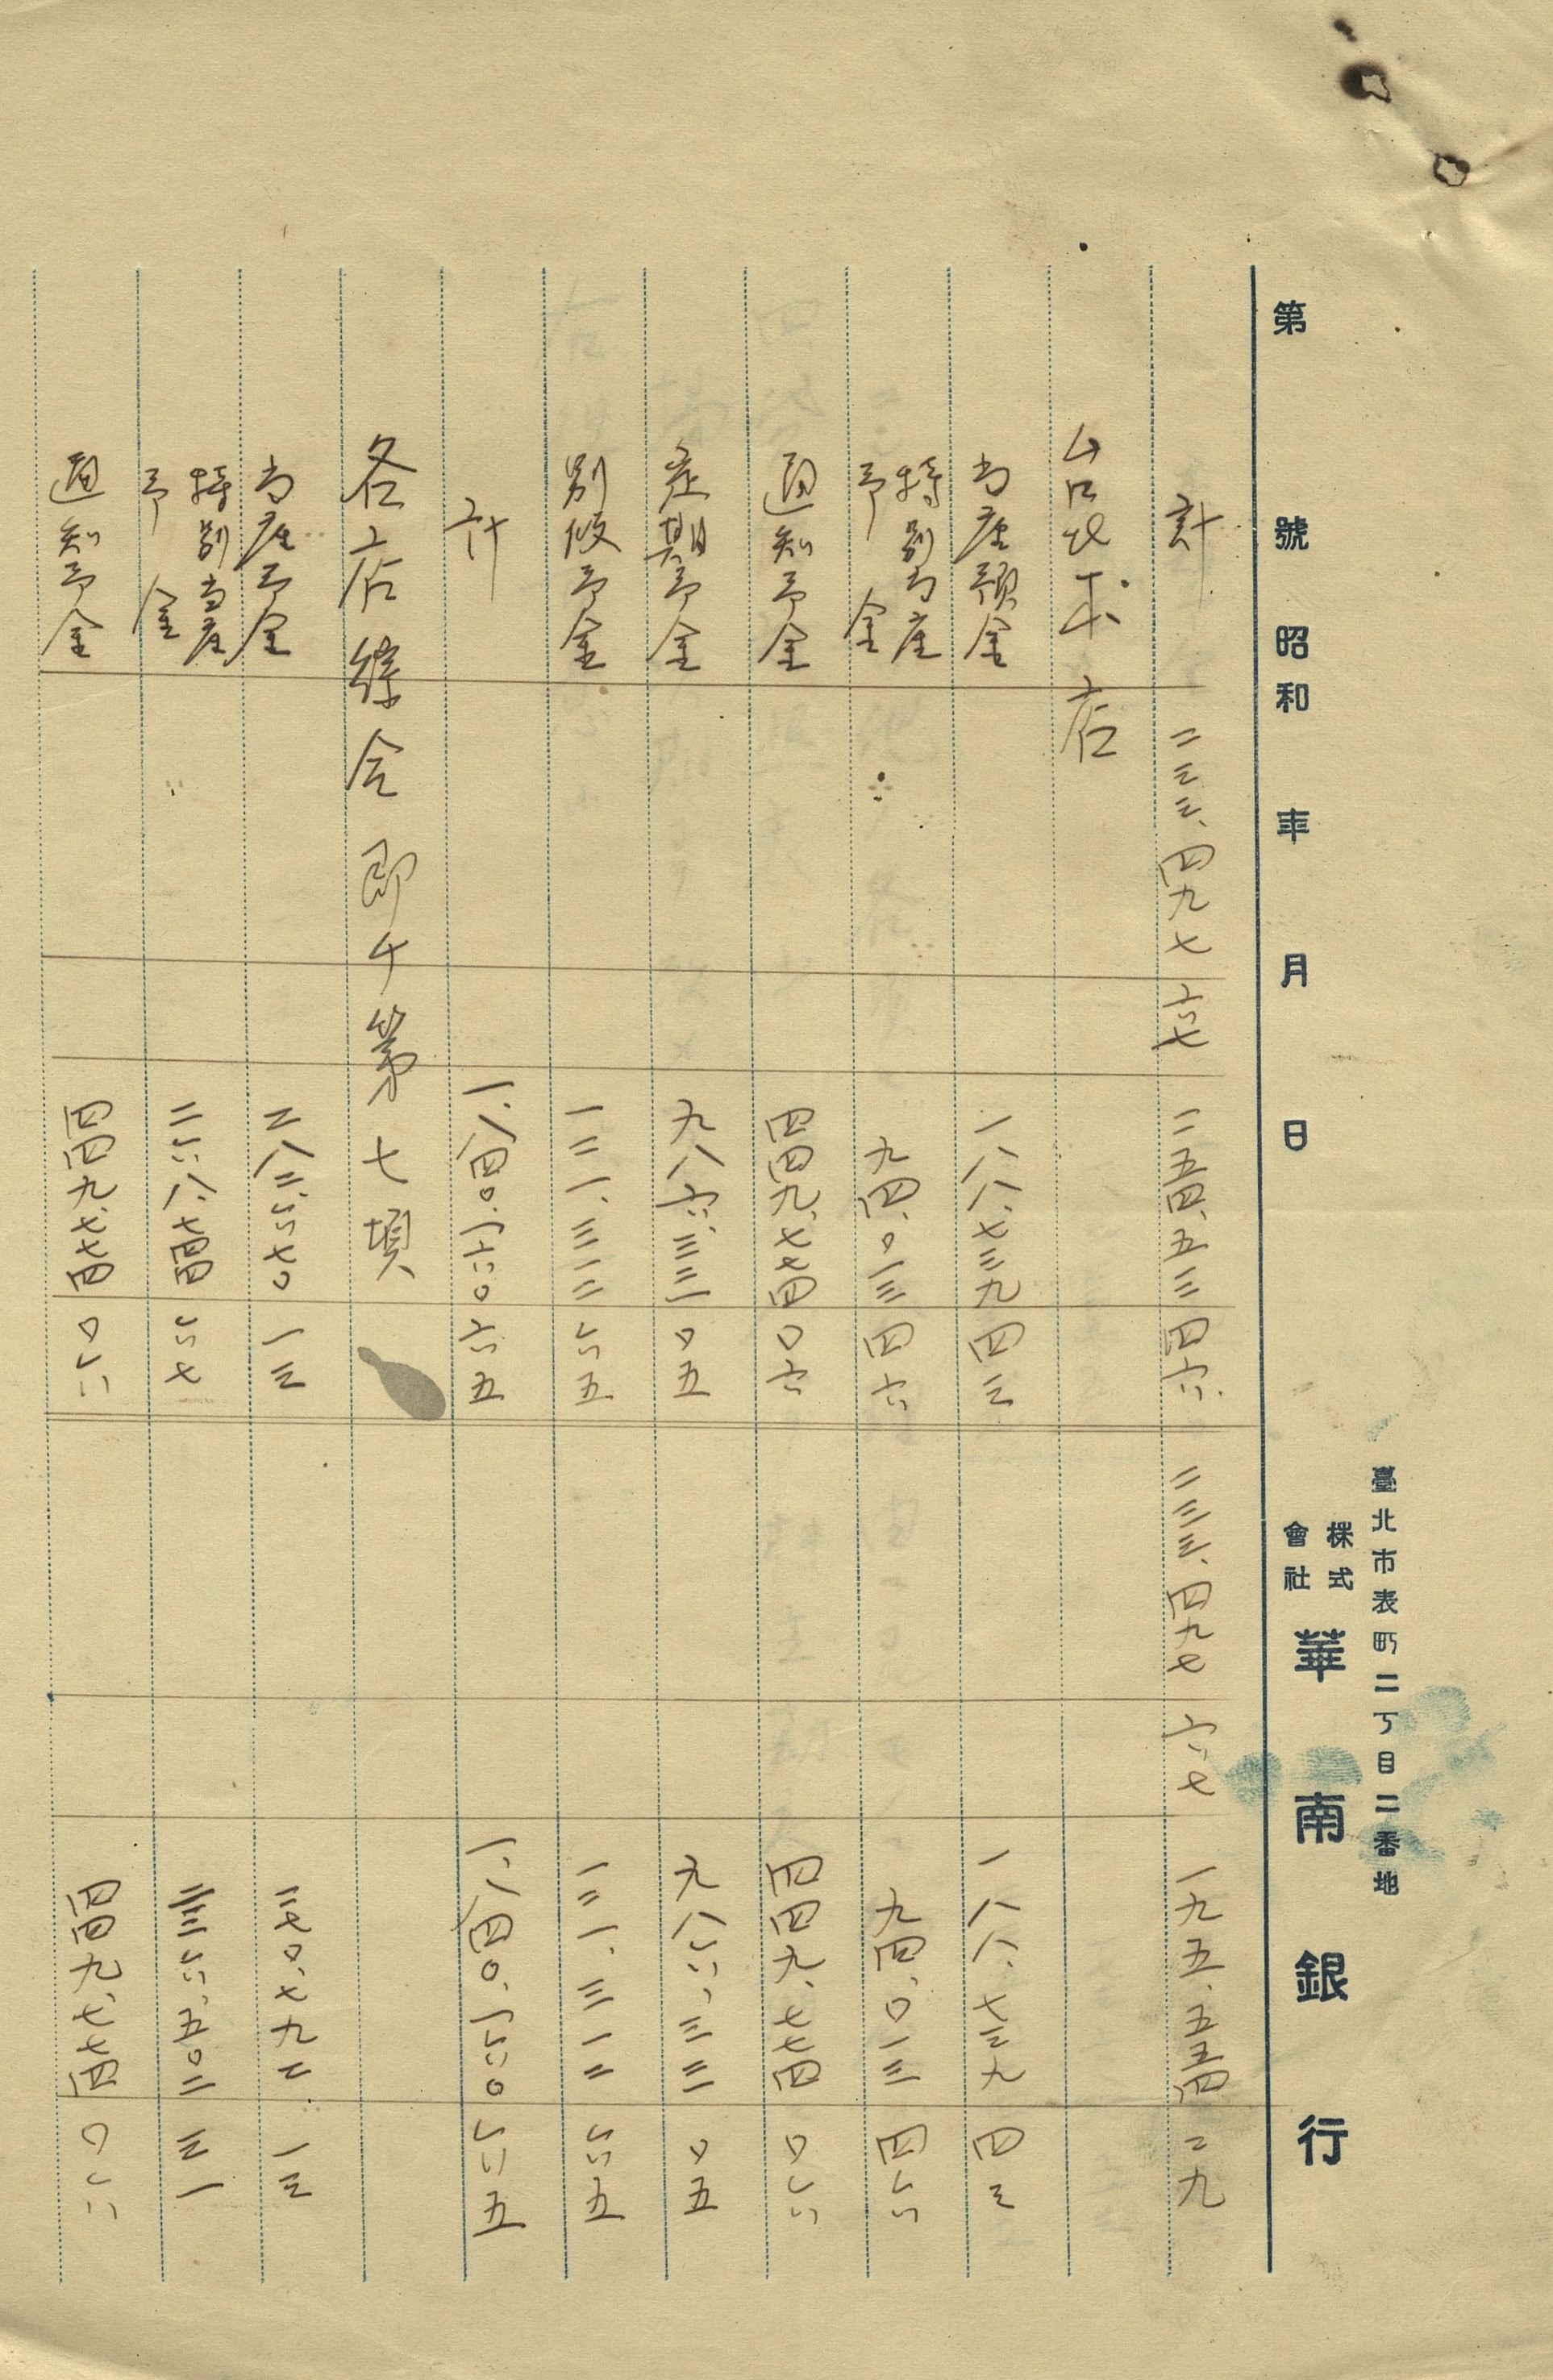 臺北市表町二丁目二番地
株式會社 華南銀行
第 號 昭和 年 月 日
計 二三三、四九七 六七 二五四、五三二 四六 二三三、四九七 六七 一九五、五五四 二九
台北本店
当座預金 一八八、七三九 四三 一八八、七三九 四三
特別当座予金 九四、〇一三 四六 九四、〇一三 四六
通知予金 四四九、七七四 〇六 四四九、七七四 〇六
定期予金 九八六、三二一 〇五 九八六、三二一 〇五
別段予金 一二一、三一二 六五 一二一、三一二 六五
計 一、八四〇、一六〇 六五 一、八四〇、一六〇 六五
各店綜合 即チ第七項
当座予金 二八二、六七〇 一三 二七〇、七九二 一三
特別当座予金 二六八、七四四 六七 二三六、五〇二 三一
通知予金 四四九、七七四 〇六 四四九、七七四 〇六